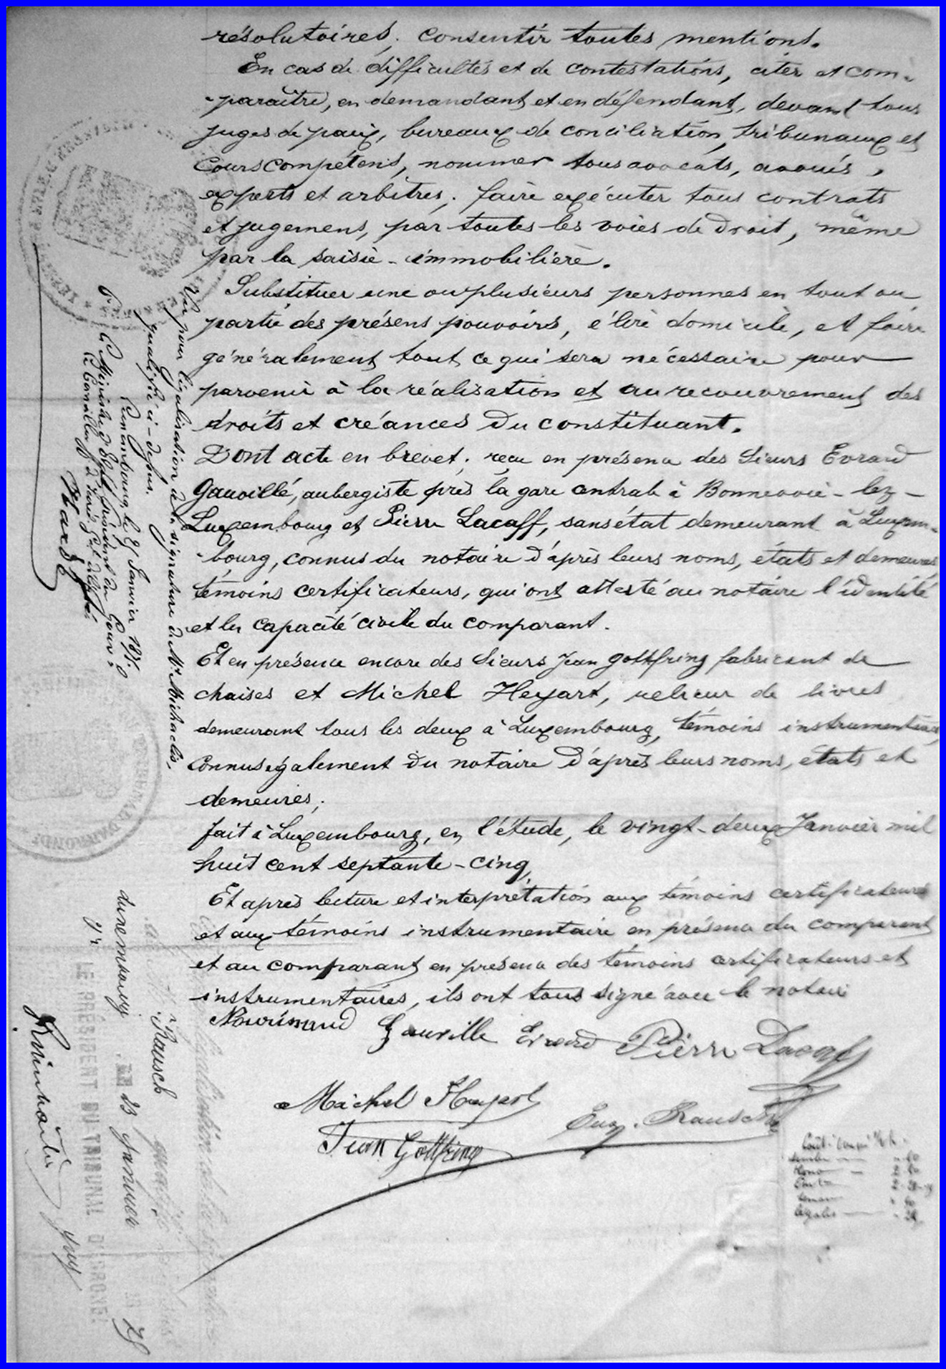 résolutoires, consentir toutes mentions.
En cas de difficultés et de contestations, citer et com-
paraître, en demandant et en défendant, devant tous
juges de paix, bureaux de conciliation, tribunaux et
Cours compétens, nommer tous avocats, avoués,
experts et arbitres, faire exécuter tous contrats
et jugemens, par toutes les voies de droit, même
par la saisie-immobilière.
Substituer une ou plusieurs personnes en tout ou
partie des présens pouvoirs, élire domicile, et faire
généralement tout ce qui sera nécessaire pour
parvenir à la réalisation et au recouvrement des
droits et créances du constituant.
Dont acte en brevet, reçu en présence des Sieurs Evrard
Gauville, aubergiste près la gare centrale à Bonnevoie-lez-
Luxembourg et Pierre Lacaff, sans état demeurant à Luxem-
bourg, connus du notaire d'après leurs noms, états et demeures
témoins certificateurs, qui ont attesté au notaire l'identité
et la capacité civile du comparant.
Et en présence encore des Sieurs Jean Gottfring fabricant de
chaises et Michel Heyart, relieur de livres
demeurant tous les deux à Luxembourg, témoins instrumentaires,
connus également du notaire d'après leurs noms, états et
demeures;
fait à Luxembourg, en l'étude, le vingt-deux Janvier mil
huit cent septante-cinq,
Et après lecture et interprétation aux témoins certificateurs
et aux témoins instrumentaire en présence du comparant
et au comparant en présence des témoins certificateurs et
instrumentaires, ils ont tous signé avec le notaire
Gauville Evrard Pierre Lacaff
Michel Heyart
Eug. Rausch
Jean Gottfring
Vu pour légalisation de la signature de Mr
qualifié ci-dessus.
Luxembourg, le 25 Janvier 1875
Le Ministre d'Etat, Président du Gouvt
Rausch
Luxembourg
25 Janvier 75
LE PRÉSIDENT DU TRIBUNAL D'ARROND.